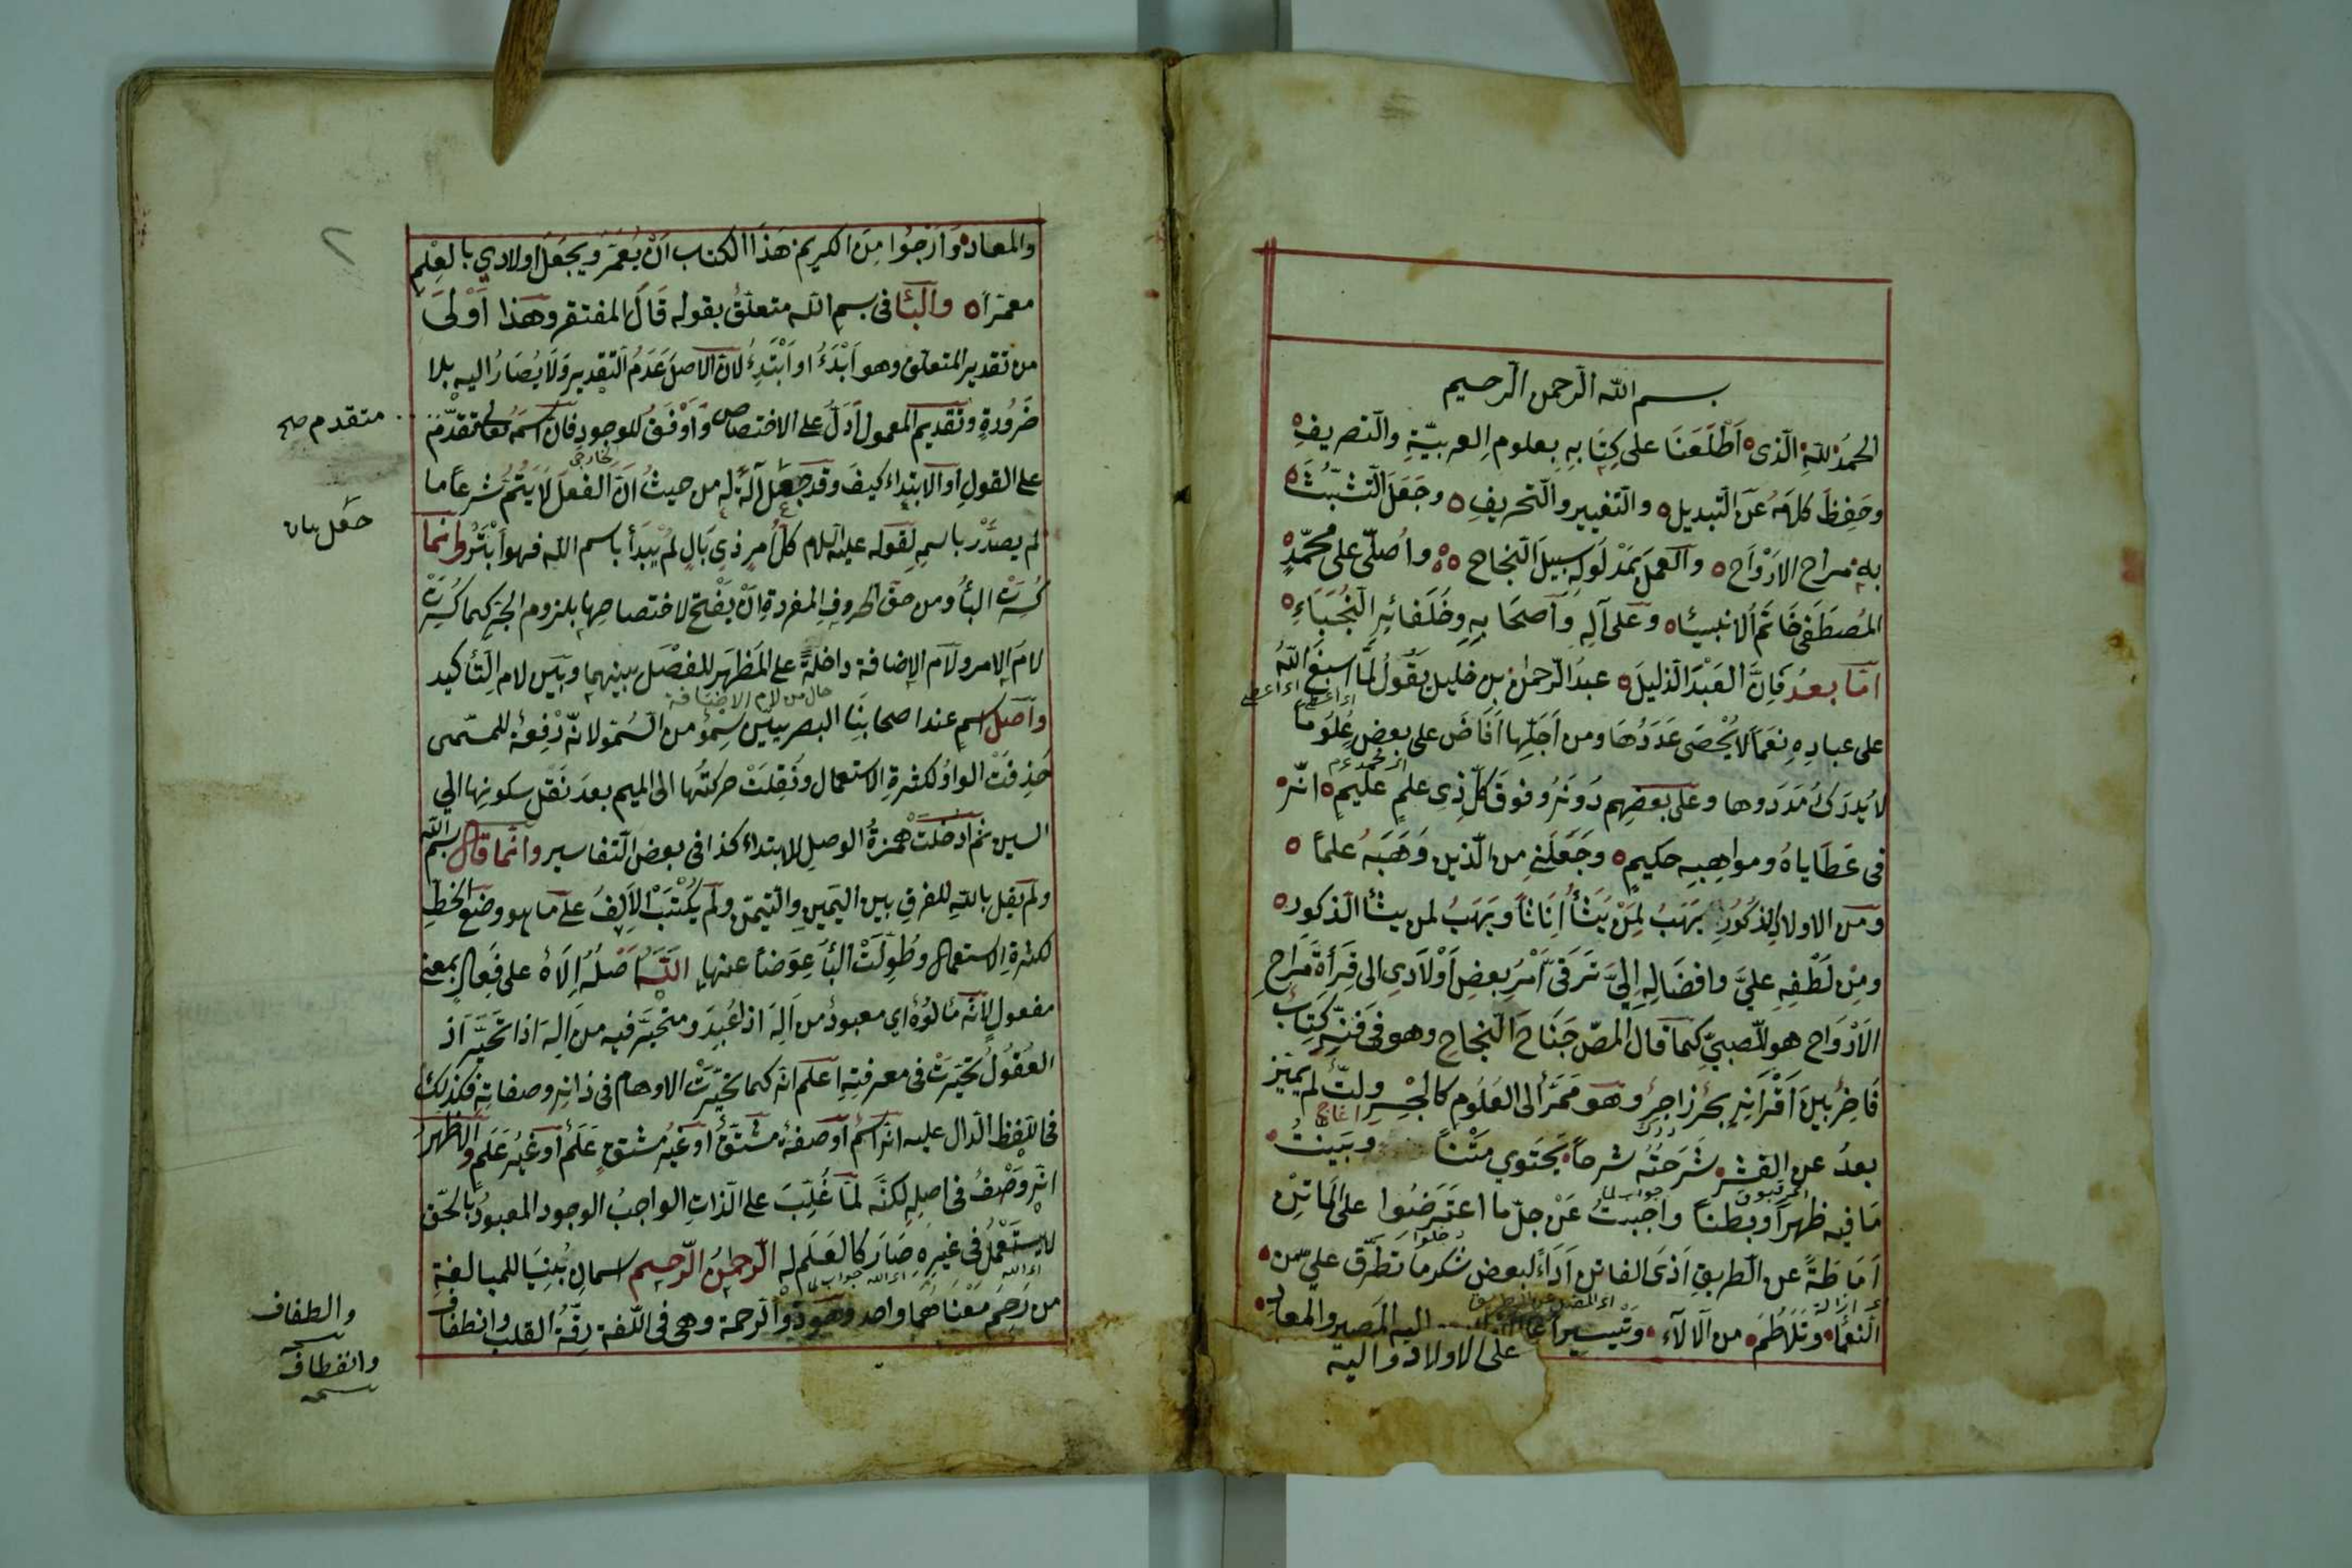 بسم الله الرحمن الرحيم
الحَمْدُ للّهِ الّذى اَطْلَعَنَا على كِتَابِهِ بعلوم العربيّةِ والتّصريفِ
وحَفِظَ كلامَهُ عَنِ التّبديل والتّغيير والتّحريفِ وجَعَلَ التّشبّثَ
به مراح الارْوَاح والعملَ بمَدْلولِهِ سبيلَ النّجاح واُصلّى على محمّدٍ
المُصطَفى خَاتَم الانبيَاء وعلى آلِهِ وأصحَابِهِ وخُلَفائِهِ النُّجَبَاءِ
امّا بعدُ فاِنَّ العَبْدَ الذليلَ عبدَ الرّحمٰن بن خليل يقولُ لمّا اسبغَ اللّهُ
على عبادِهِ نِعَمًا لا يُحْصَى عَدَدُهَا ومن اَجَلّها اَفَاضَ على بعضٍ عُلومًا
لا يُدرَكُ مَدَدوها وعلى بعضِهم دُونَهُ وفوقَ كلّ ذِى علمٍ عليم انّه
فى عَطَاياهُ ومواهِبِه حكيم وجَعَلَنى مِن الّذين وَهَبَهُ علمًا
ومن الاولاد الذكُورِ يَهَبُ لِمَنْ يَشَأُ اِنَاثًا ويَهَبُ لمن يشأ الذكور
ومِنْ لُطْفِهِ عليّ وافضَالِهِ اِلَيَّ تَرَقىَّ اَمْرُ بعضِ اَوْلَادِى الى قِرَأةِ مراحِ
الَارْوَاحِ هو للصبيّ كما قال المصّ جَنَاحَ النّجاحِ وهو فى فنّه كتابٌ
فَاخِرٌ بينَ اَقْرَانِهِ بحْرٌ زاخِرٌ وهو مَمَرٌّ الى العُلُوم كالجِسْرِ ولمّا لم يميّز
بعدُ عن القشر شَرَحْتُه شرحًا يَحْتَوِي مَتْنًا وبَيّنتُ
مَا فيه ظهرًا وبطنًا واَجَبتُ عَنْ جلّ ما اعتَرضُوا على المَاتِنِ
اَمَاطةً عن الطريقِ اَذَى الفاتن اَدَاءً لبعض شكر ما تطرّق عليّ من
النعمَاء وتَلَاطَمَ من الآلاء وتيسيرًا اليه المصير والمعاد
على الاولاد واليه
والمعاد وَاَرْجُوا مِنَ الكريم هَذَا الكتاب اَنْ يُعَمَّرَ ويجعَلَ اولادي بالعِلْمِ
معمّرًا والبَأ فى بسم اللّه متعلّقٌ بقوله قَالَ المفتقر وهَذا اَوْلَى
من تقدير المتعلّق وهو اَبْدَءُ او اَبْتَدِءُ لانّ الاصلَ عَدَمُ التّقدير وَلَا يُصَارُ اليه بلا
ضَرُورةٍ وتقديم المعمول اَدَلّ على الاختصاص وَاَوْفَقُ للوجود فانّ اسمَهُ تعالى تقدّمَ
على القولِ اَو الابتِداء كيفَ وقد جعل آلَةً له من حيثُ انّ الفعلَ لَا يَتُمُّ شرعًا ما
لم يصدّرْ باسمِهِ لقوله عليه السّلام كلّ امرٍ ذِى بَالٍ لمْ يُبدَأْ باسم اللّه فهو اَبْتَرُ وانّما
كُسِرَت البأ ومن حقّ الحروفِ المفردةِ اَنْ يُفْتَحَ لاختصاصِها بلزوم الجرّ كما كُسِرَتْ
لامُ الامر ولامُ الاضافة داخلةً على المَظْهَر للفصْلِ بينهما وبينَ لام التّأكيد
حال من لام الاضافة
وأصلُ اسم عند اصحابِنَا البصريّين سِمْوٌ من السُّمُوّ لانّه رِفْعةٌ للمسمّى
حُذِفَتْ الواوُ لكثرةِ الاستعمال ونُقِلَتْ حركتُها الى الميم بعدَ نَقْلِ سكونِها الى
السين ثمّ اُدخلَتْ همزةُ الوصلِ للابتداء كذا فى بعض التّفاسير وانّما قال بسم اللّه
ولم يقل باللّه للفرقِ بين اليَمِينِ والتّيمّنِ ولم يُكْتَبْ الاَلِفُ على ما هو وضع الخطِّ
لكثرةِ الاستعمال وطُوِّلَتْ البَأُ عِوَضًا عنها اللّه اَصْلُهُ اِلَاهٌ على فِعالٍ بمعنى
مفعولٍ لانّه مَألوُهٌ اي معبودٌ من اَلِهَ اذا عُبِدَ ومتحيَّر فيه من اَلِهَ اذا تحيَّرَ اذ
العُقُولُ تحيّرَتْ فى معرفتِهِ اعلم انّه كما تحيَّرَتْ الاوهام فى ذاتِهِ وصفاتِهِ فكذلك
فى اللّفظِ الدال عليه انّه اسمٌ اَو صفةٌ مشتقٌّ اَو غيرُ مشتقّ عَلَمٌ اَو غيرُ عَلَمٍ والاظهرُ
انّه وَصْفٌ فى اصلِهِ لكنَّه لمّا غُلِّبَ على الذاتِ الواجبُ الوجود المعبودُ بالحقّ
لا يستَعْملُ فى غيرِهِ صَارَ كالعَلَمِ له الرّحمٰن الرّحيم اسمانِ بُنِيَا للمبالغةِ
من رَحِمَ مَعْنَاهُما واحد والرحمة وهى فى اللّغة رِقّةُ القلبِ وانعطاف
متقدم صح
جعل بيان